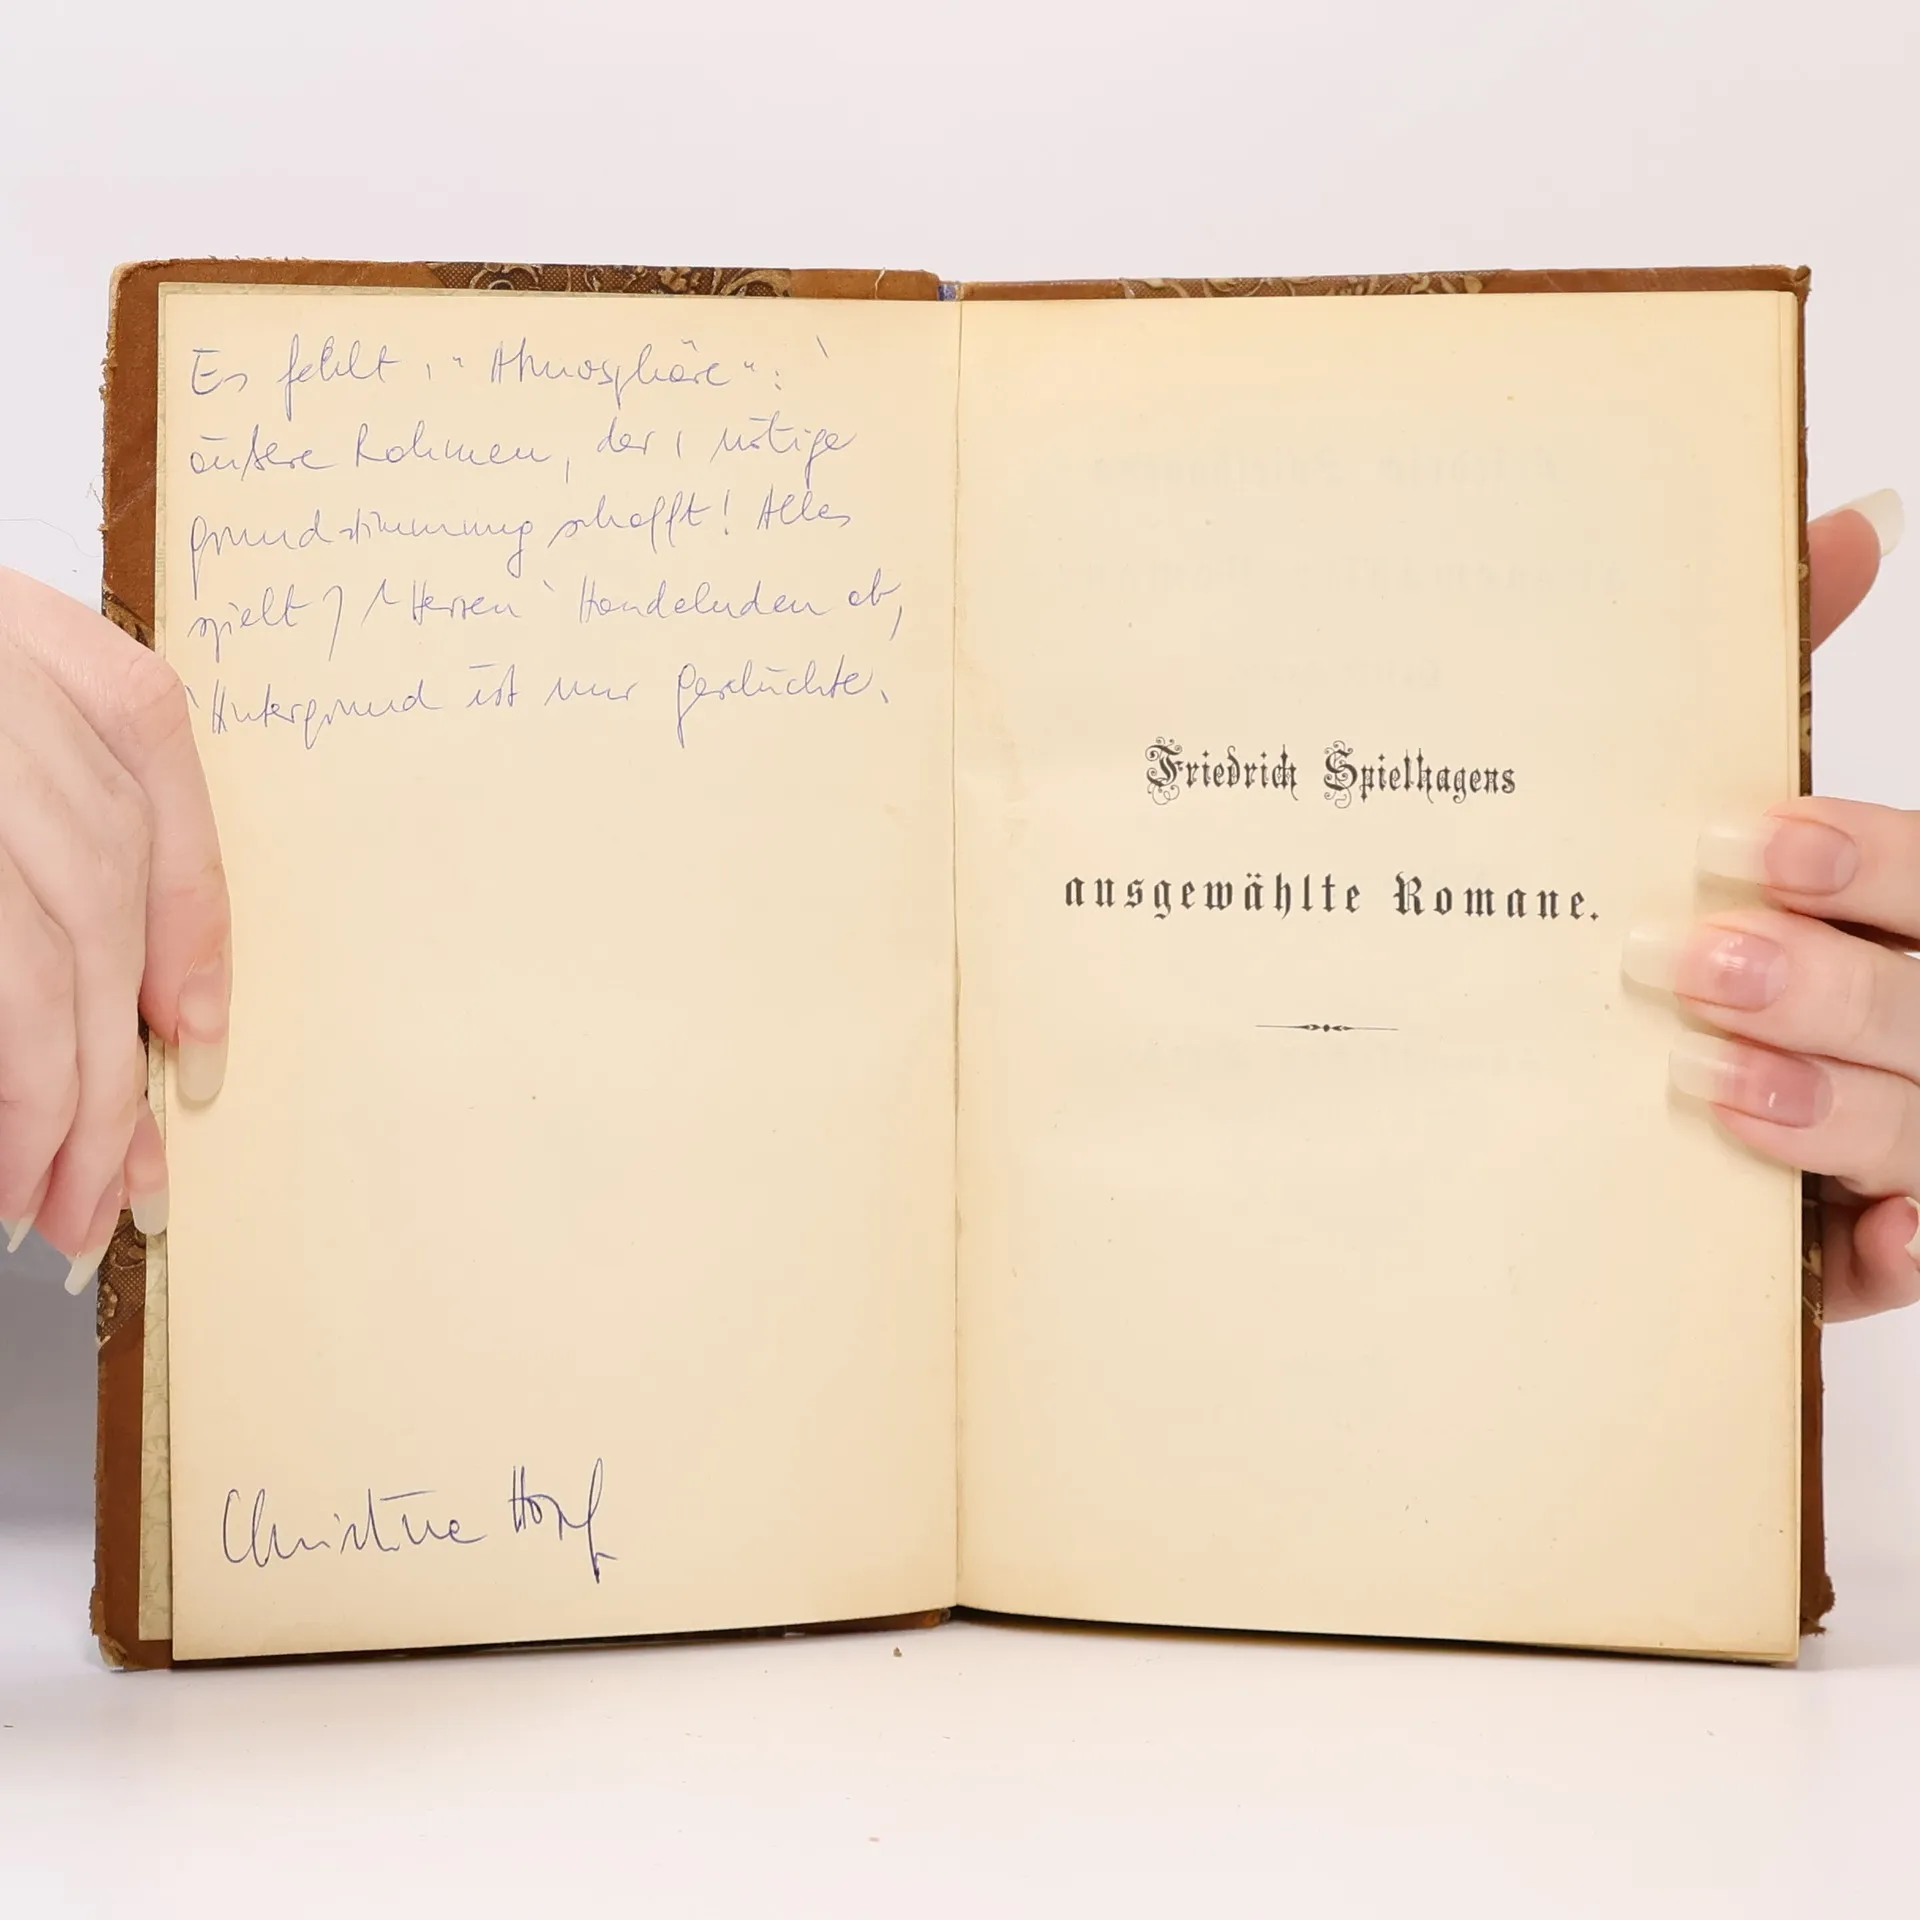 Es fehlt , "Atmosphäre": `
äußere Rahmen, der , nötige
Grundstimmung schafft! Alles
spielt Herzen ` Handelnden ab,
` Hintergrund ist nur Geschichte.
Christine Hopf
Friedrich Spielhagens
ausgewählte Romane.